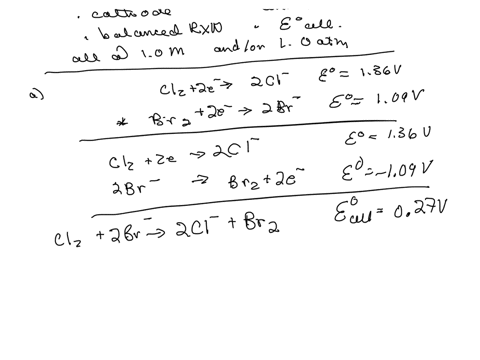 . cathode
. balanced RXN . E°cell.
all @ 1.0 M and/or 1.0 atm
a) Cl₂ + 2e⁻ → 2Cl⁻ E° = 1.36 V
* Br₂ + 2e⁻ → 2Br⁻ E° = 1.09 V
Cl₂ + 2e → 2Cl⁻ E° = 1.36 V
2Br⁻ → Br₂ + 2e⁻ E° = -1.09 V
Cl₂ + 2Br⁻ → 2Cl⁻ + Br₂ E°cell = 0.27V